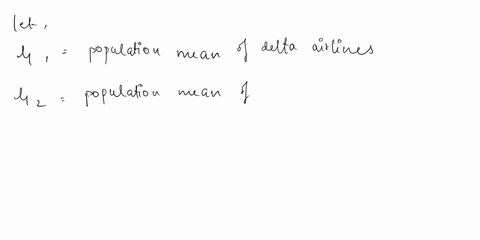 let,
μ1 = population mean of delta airlines
μ2 = population mean of